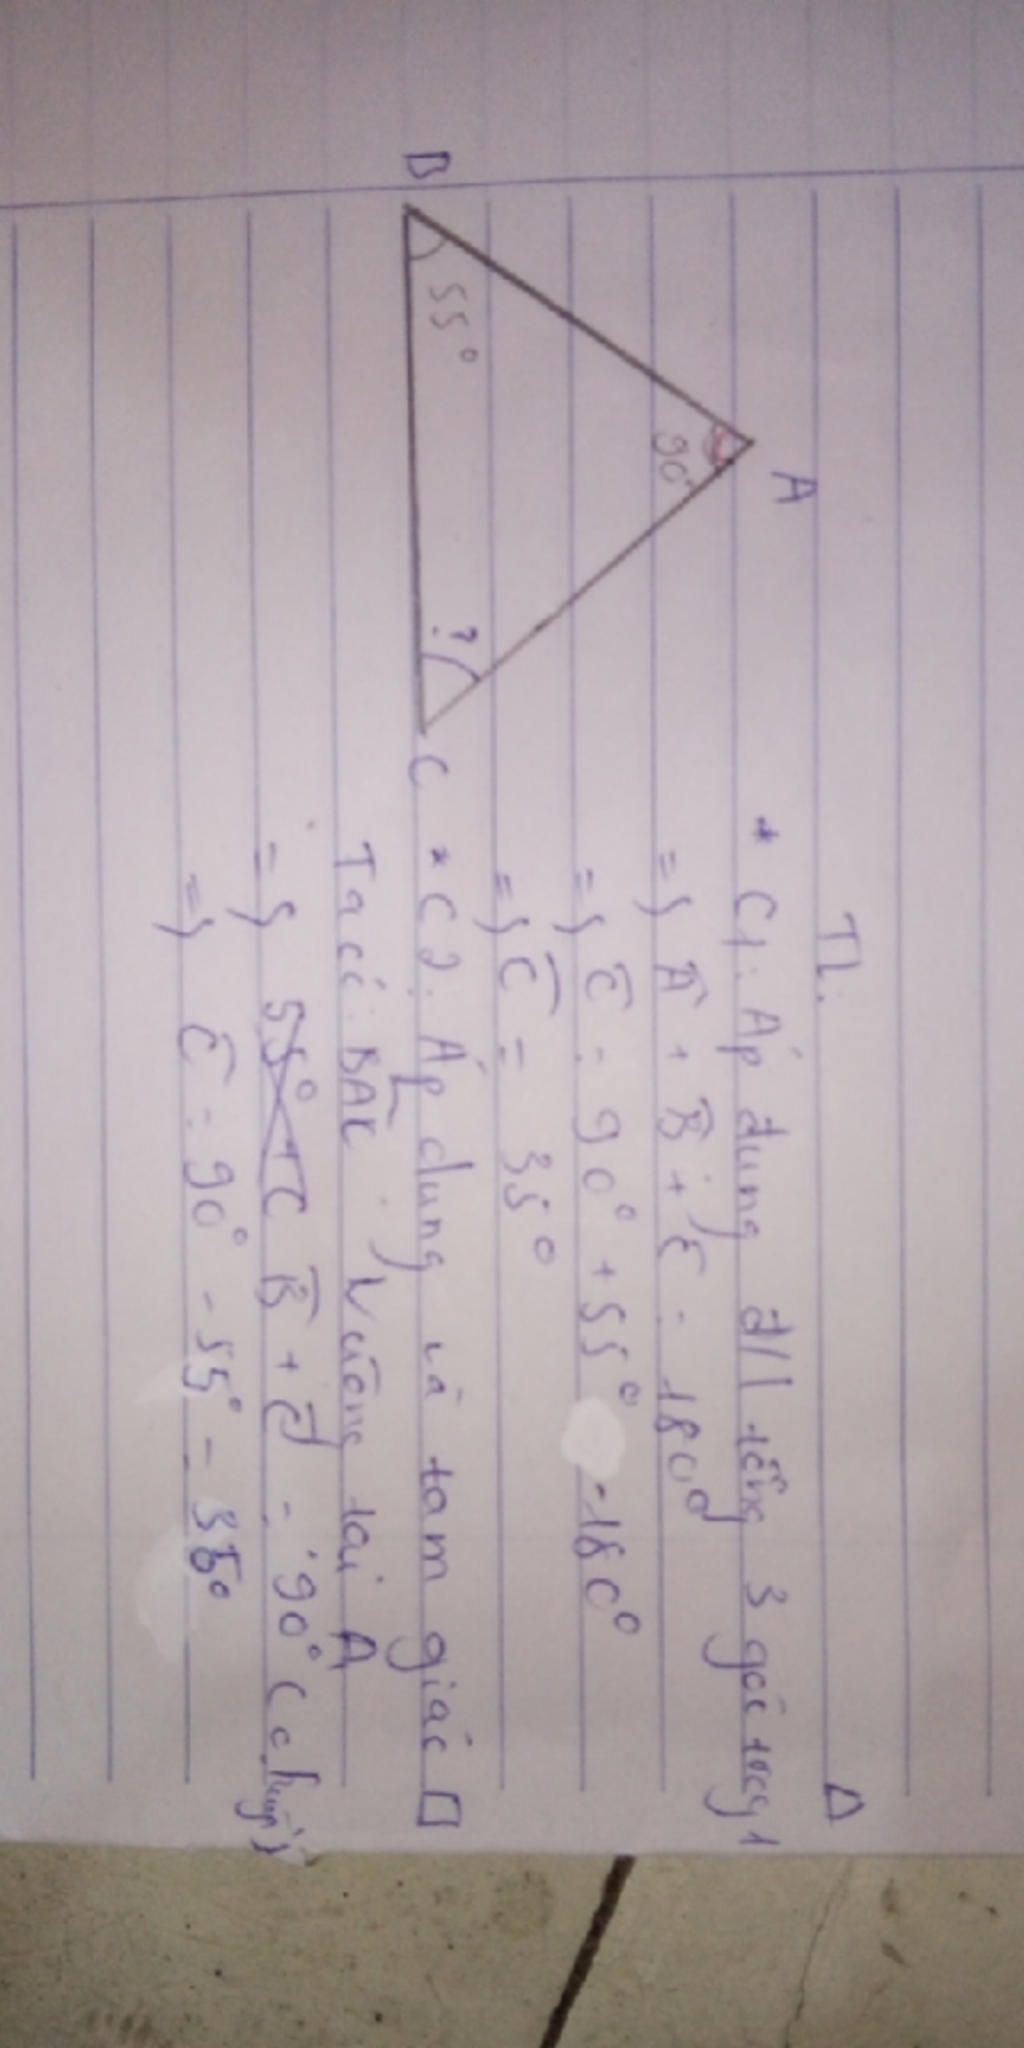 TL:
Δ
A
90°
B
55°
?
C
* C1: Áp dụng đ/l tổng 3 góc trong 1
=> A + B + C = 180°
=> C = 90° + 55° - 180°
=> C = 35°
* C2: Áp dụng và tam giác □
Ta có: BAC vuông tại A
=> B + C = 90° (
=> C = 90° - 55° = 35°